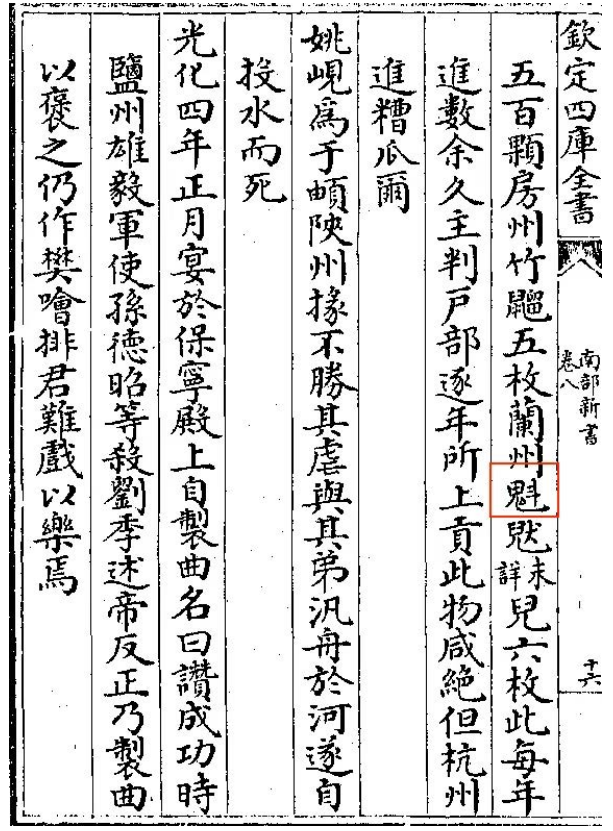 欽定四庫全書
南部新書
卷八
十六
五百顆房州竹䶉五枚蘭州魁㹸未詳兒六枚此每年
進數余久主判戸部逐年所上貢此物咸絶但杭州
進糟瓜爾
姚峴為于頔陜州掾不勝其虐與其弟汎舟於河遂自
投水而死
光化四年正月宴於保寧殿上自製曲名曰讚成功時
鹽州雄毅軍使孫德昭等殺劉季述帝反正乃製曲
以褒之仍作樊噲排君難戲以樂焉